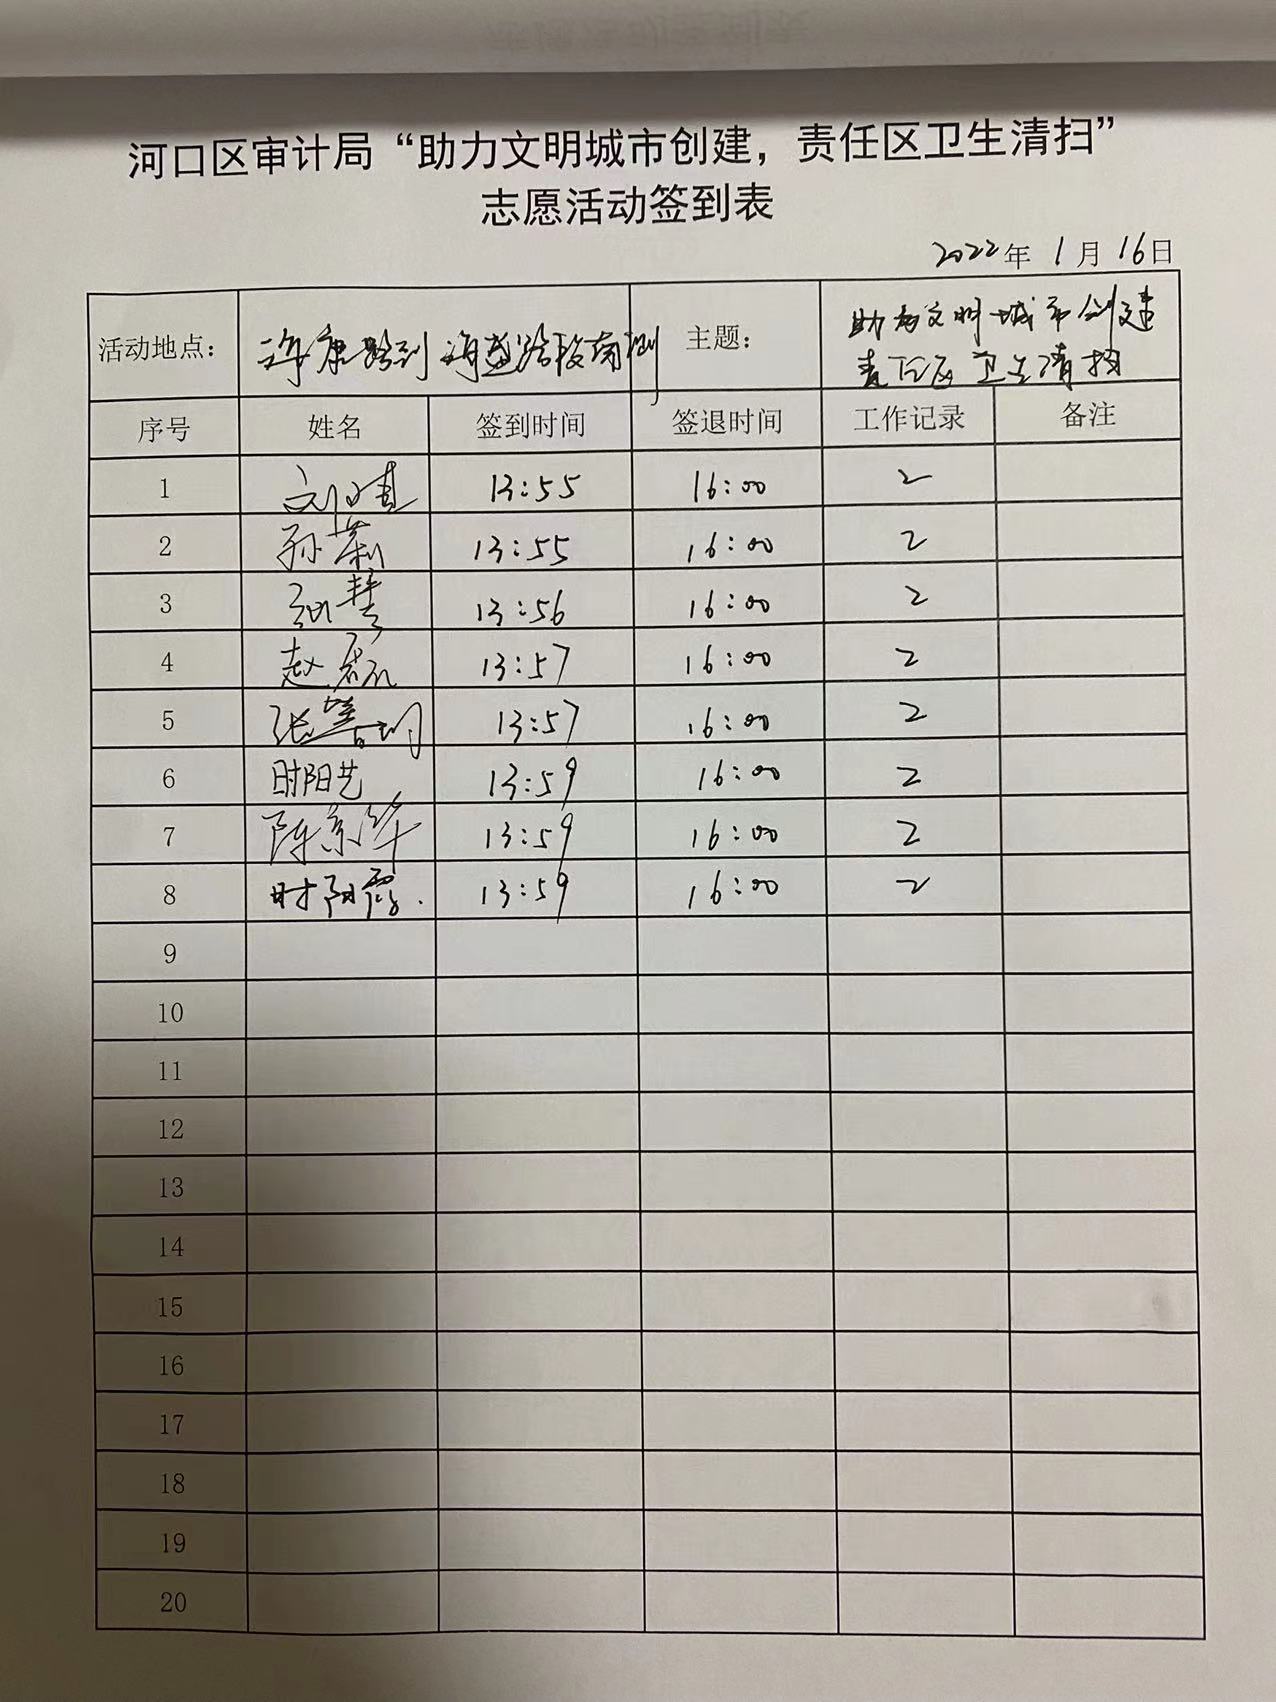 河口区审计局“助力文明城市创建，责任区卫生清扫”
志愿活动签到表
2022年 1月 16日
活动地点： 海康路到 海盛路段南侧 主题： 助力文明城市创建
责任区卫生清扫
序号 姓名 签到时间 签退时间 工作记录 备注
1 刘晴 13:55 16:00 2
2 孙莉 13:55 16:00 2
3 慧 13:56 16:00 2
4 赵 13:57 16:00 2
5 张 13:57 16:00 2
6 时阳艺 13:59 16:00 2
7 陈京华 13:59 16:00 2
8 时阳霞. 13:59 16:00 2
9
10
11
12
13
14
15
16
17
18
19
20